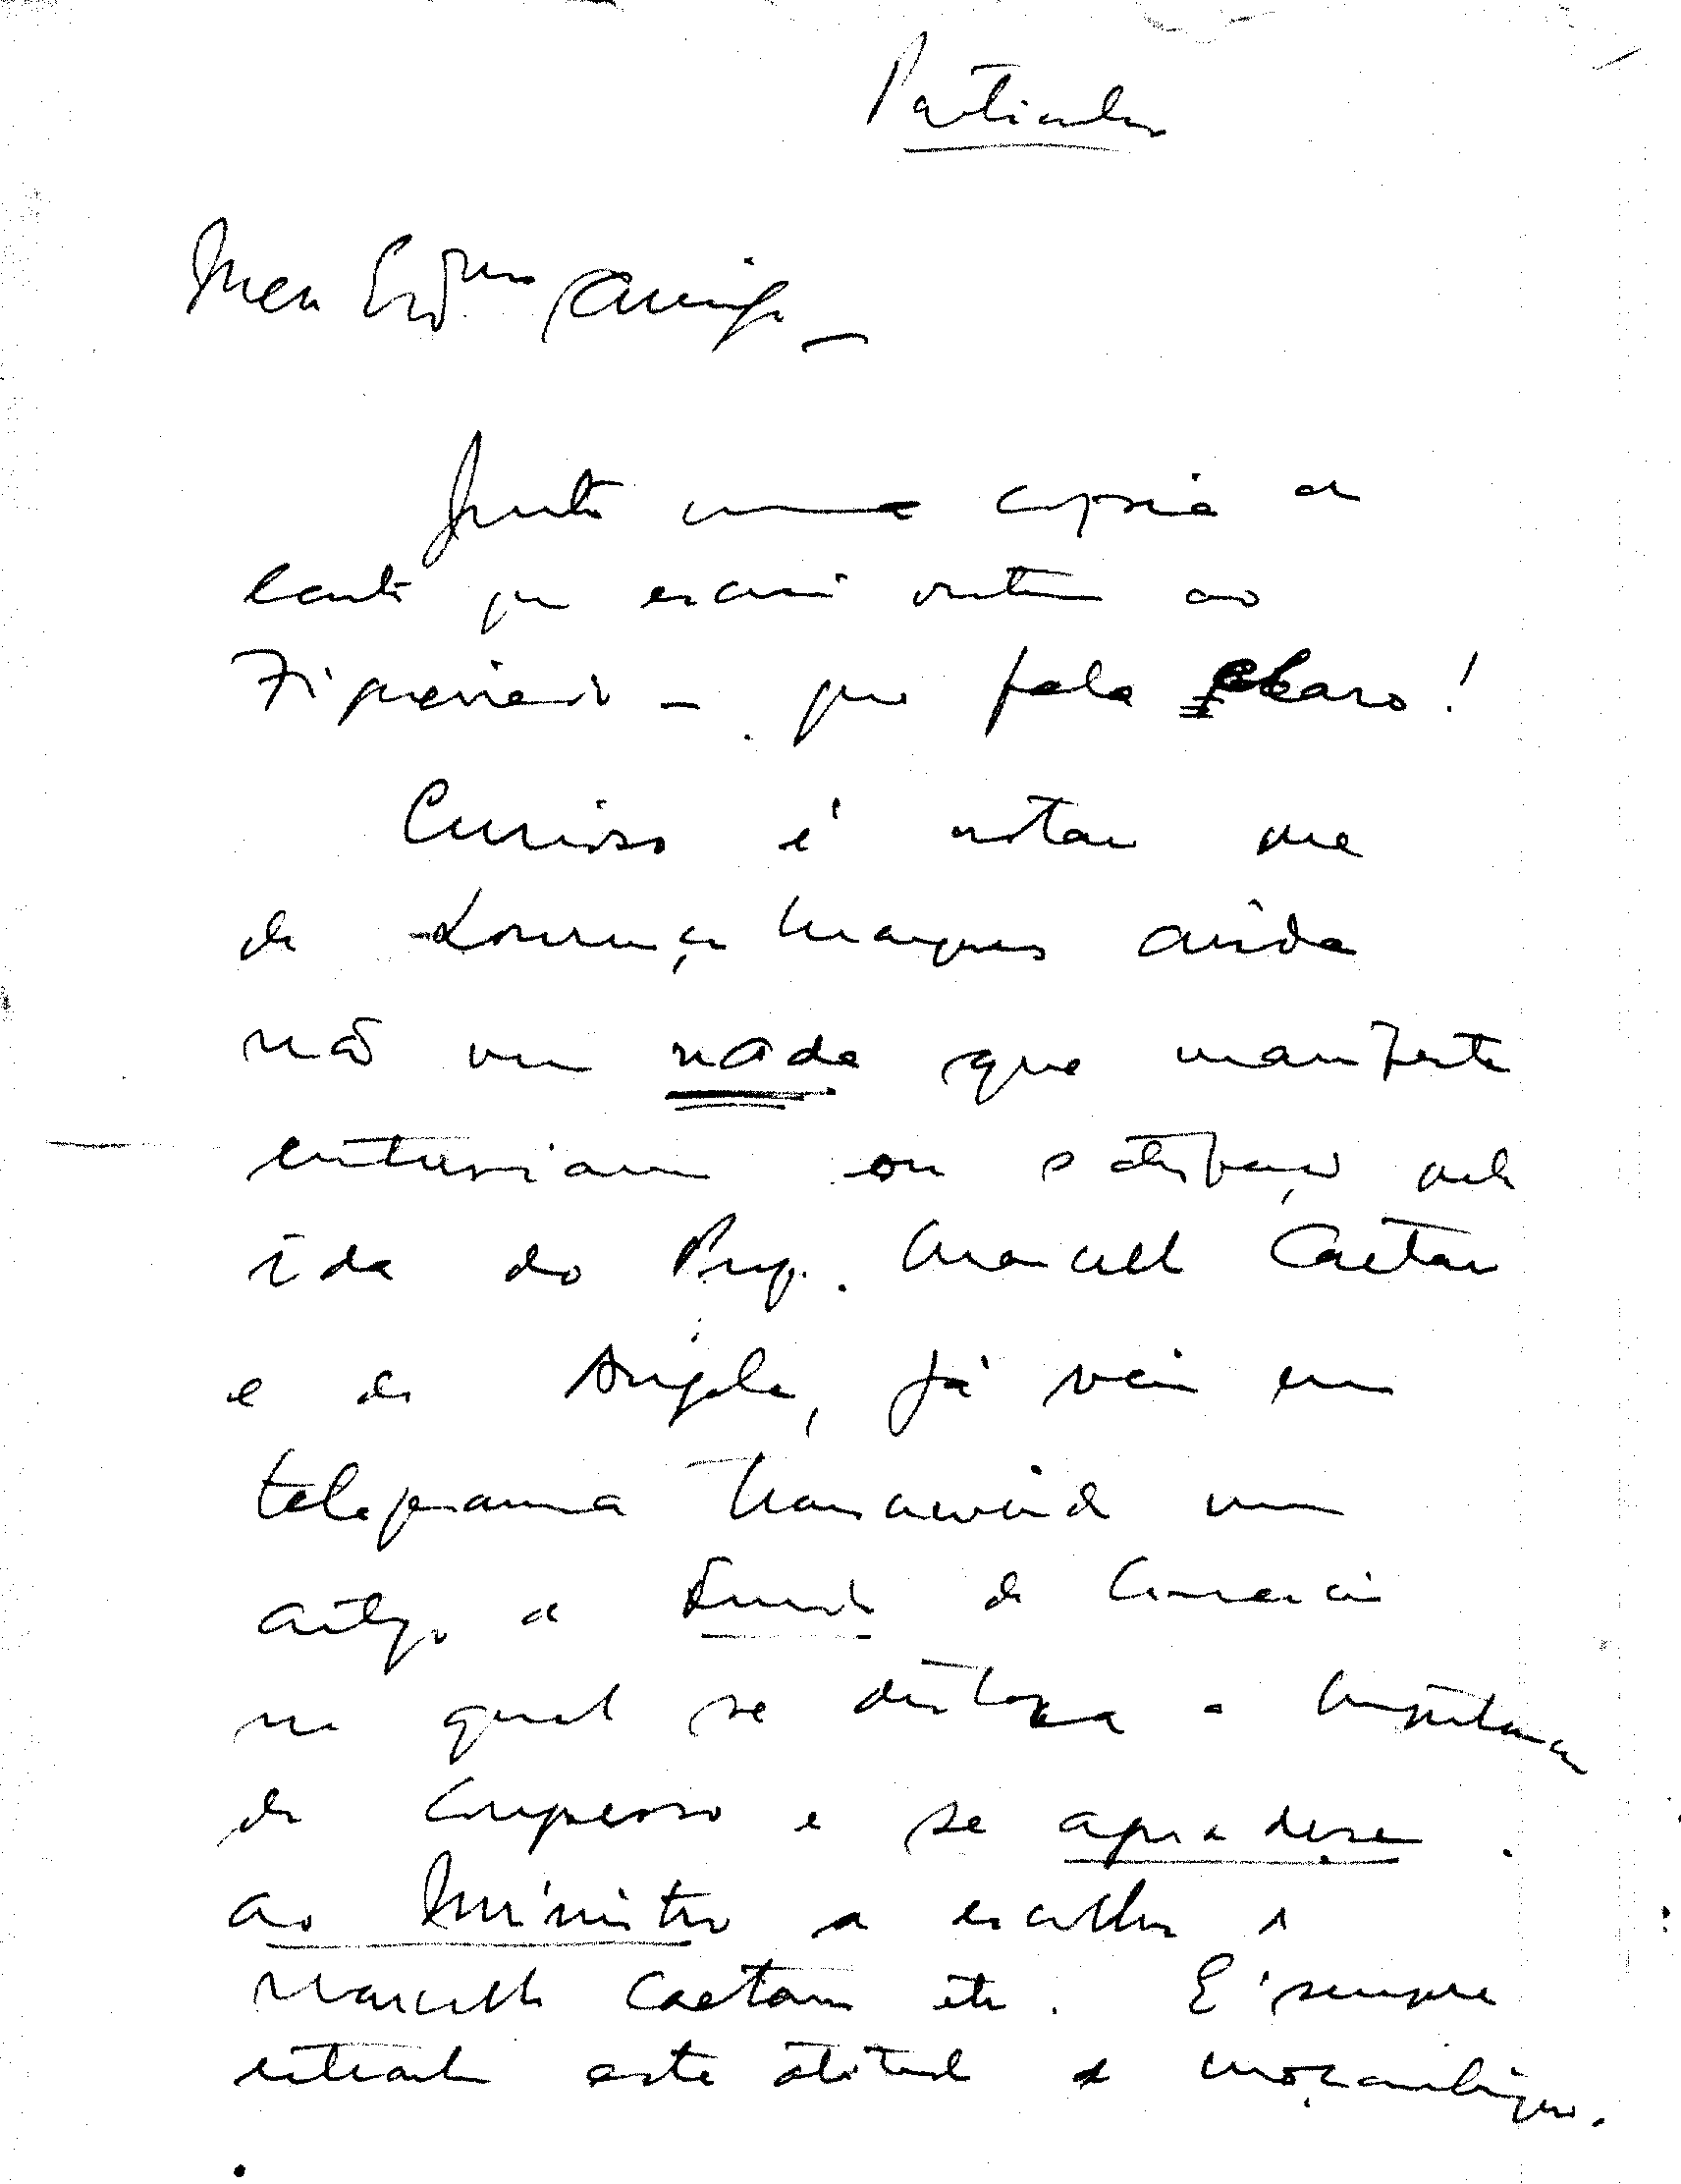 Particular
Meu Exº.mo Amigo _
Junto uma copia da
carta que escrevi ontem ao
Figueiredo – que fala claro!
Curioso é notar que
de Lourenço Marques ainda
não vem nada que manifeste
entusiasmo ou satisfação pela
ida do Prof. Marcello Caetano
e de Angola, já veio um
telegrama transcrevendo um
artigo do de Comercio
no qual se destaca a importancia
do Congresso e se agradece
ao Ministro a escolha de
Marcello Caetano etc. É sempre
estranha esta atitude de Moçambique.